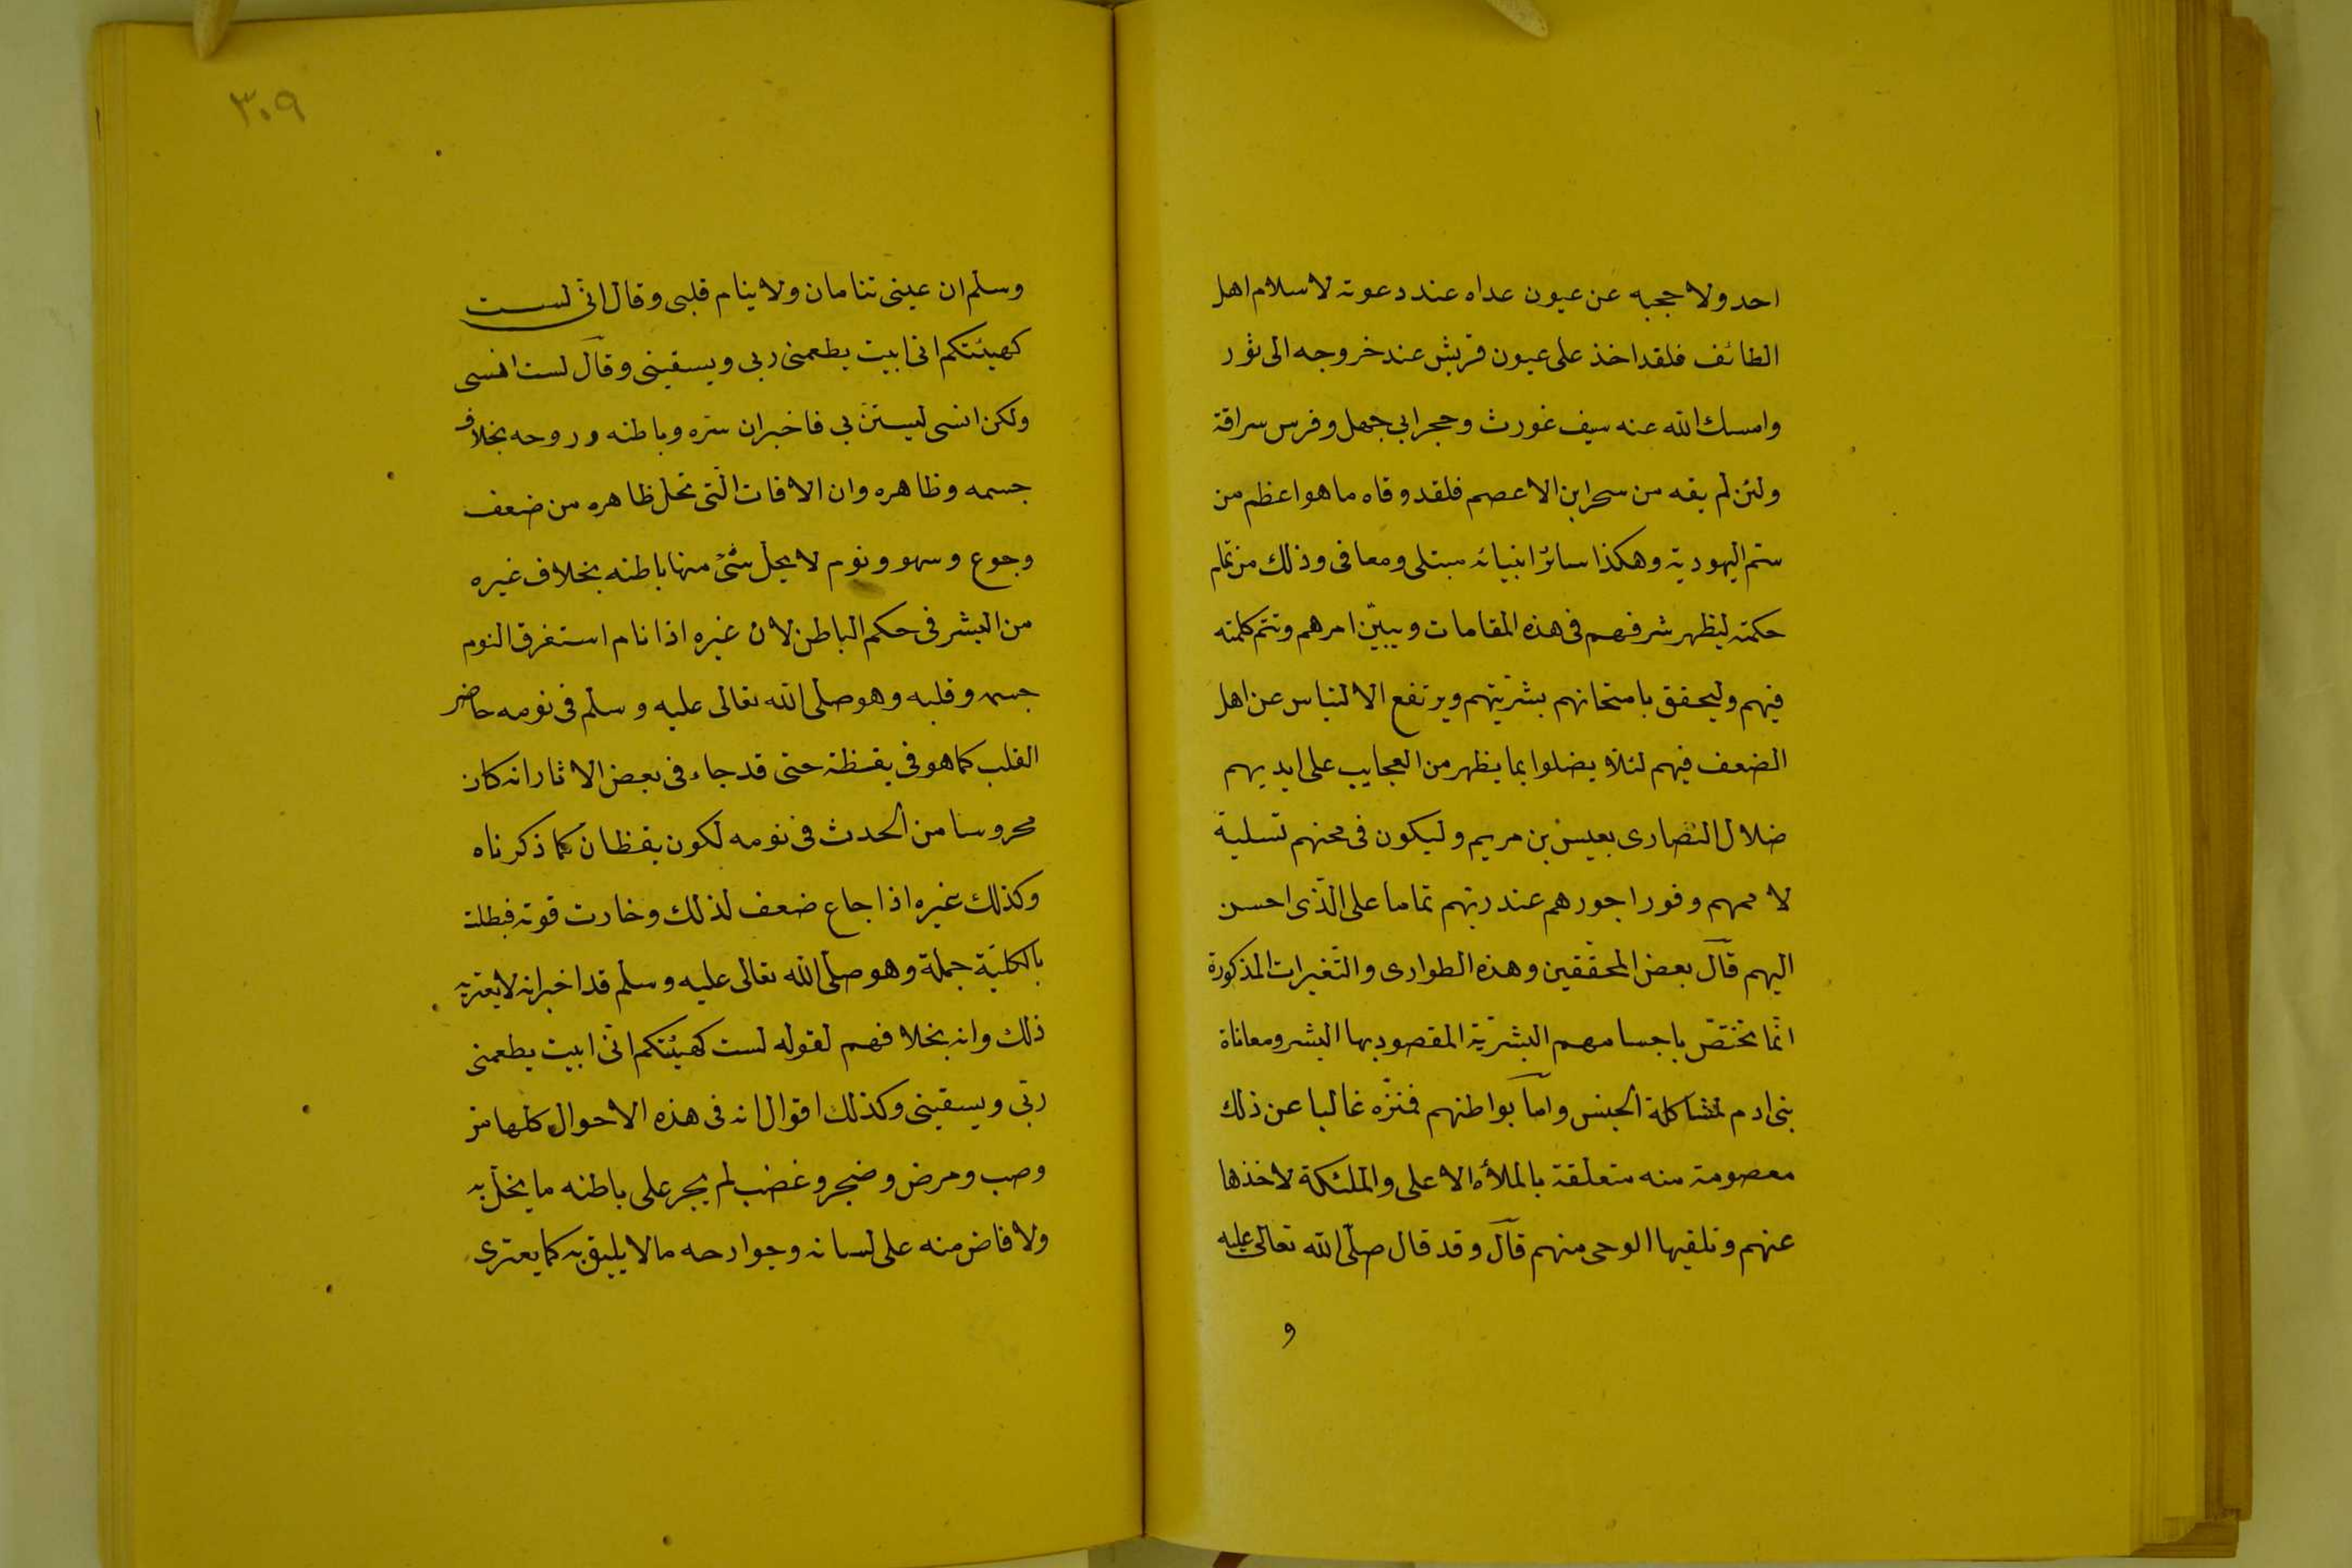 احد ولا حجبه عن عيون عداه عند دعوته لاسلام اهل
الطائف فلقد اخذ على عيون قريش عند خروجه الى ثور
وامسك الله عنه سيف غورث وحجر ابي جهل وفرس سراقة
ولئن لم يقه من سحر ابن الاعصم فلقد وقاه ما هو اعظم من
ستم اليهودية وهكذا سائر انبيائه مبتلى ومعافى وذلك من تمام
حكمته ليظهر شرفهم فى هذه المقامات ويبيّن امرهم وتتم كلمته
فيهم وليحقق بامتحانهم بشريّتهم ويرتفع الالتباس عن اهل
الضعف فيهم لئلا يضلوا بما يظهر من العجايب على ايديهم
ضلال النصارى بعيسى بن مريم وليكون فى محنهم تسلية
لاممهم وفور اجورهم عند ربّهم تماما على الّذى احسن
اليهم قآل بعض المحقّقين وهذه الطوارى والتّغيرات المذكورة
انّما تختصّ باجسامهم البشريّة المقصود بها البشر ومعاناة
بنى ادم لمشاكلة الجنس وامّا بواطنهم فمنزّه غالبا عن ذلك
معصومة منه متعلقة بالملأ الاعلى والملئكة لاخذها
عنهم وتلقيها الوحى منهم قآل وقد قال صلّى الله تعالى عليه
و
٣٠٩
وسلم ان عينى تنامان ولا ينام قلبى وقال انّى لست
كهيئتكم انى ابيت يطعمنى ربى ويسقينى وقآل لست انسى
ولكن انسى ليستنّ بى فاخبر ان سرّه وباطنه وروحه بخلاف
جسمه وظاهره وان الافات الّتى تحل ظاهره من ضعف
وجوع وسهو ونوم لا يحل شئ منها باطنه بخلاف غيره
من البشر فى حكم الباطن لان غيره اذا نام استغرق النوم
جسمه وقلبه وهو صلى الله تعالى عليه وسلم فى نومه حاضر
القلب كما هو فى يقظته حتى قد جاء فى بعض الاثار انه كان
محروسا من الحدث فى نومه لكون يقظان كما ذكرناه
وكذلك غيره اذا جاع ضعف لذلك وخارت قوته فبطلت
بالكليّة جملة وهو صلّى الله تعالى عليه وسلم قد اخبر انه لا يعتريه
ذلك وانه بخلافهم لقوله لست كهيئتكم انّى ابيت يطعمنى
ربّى ويسقينى وكذلك اقوال انه فى هذه الاحوال كلّها من
وصب ومرض وضجر وغضب لم يجر على باطنه ما يخلّ به
ولا فاض منه على لسانه وجوارحه ما لا يليق به كما يعترى